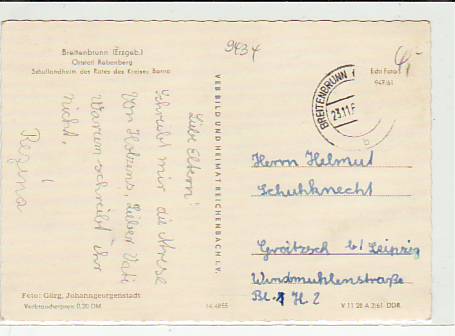 Breitenbrunn (Erzgeb.)
Ortsteil Rabenberg
Schullandheim des Rates des Kreises Borna
9434
Echt Foto
947/61
BREITENBRUNN
23.11.6
b
VEB BILD UND HEIMAT REICHENBACH I. V.
Liebe Eltern!
Schreibt mir die Adresse
Von Lieber Vati
Warum schreibt ihr
nicht.
Regina
Herrn Helmut
Schuhknecht
Groitzsch b/ Leipzig
Windmühlenstraße
Bl. H 2
Foto: Görg, Johanngeorgenstadt
Verbraucherpreis 0,20 DM
14 4855
V 11 28 A 2/61 DDR